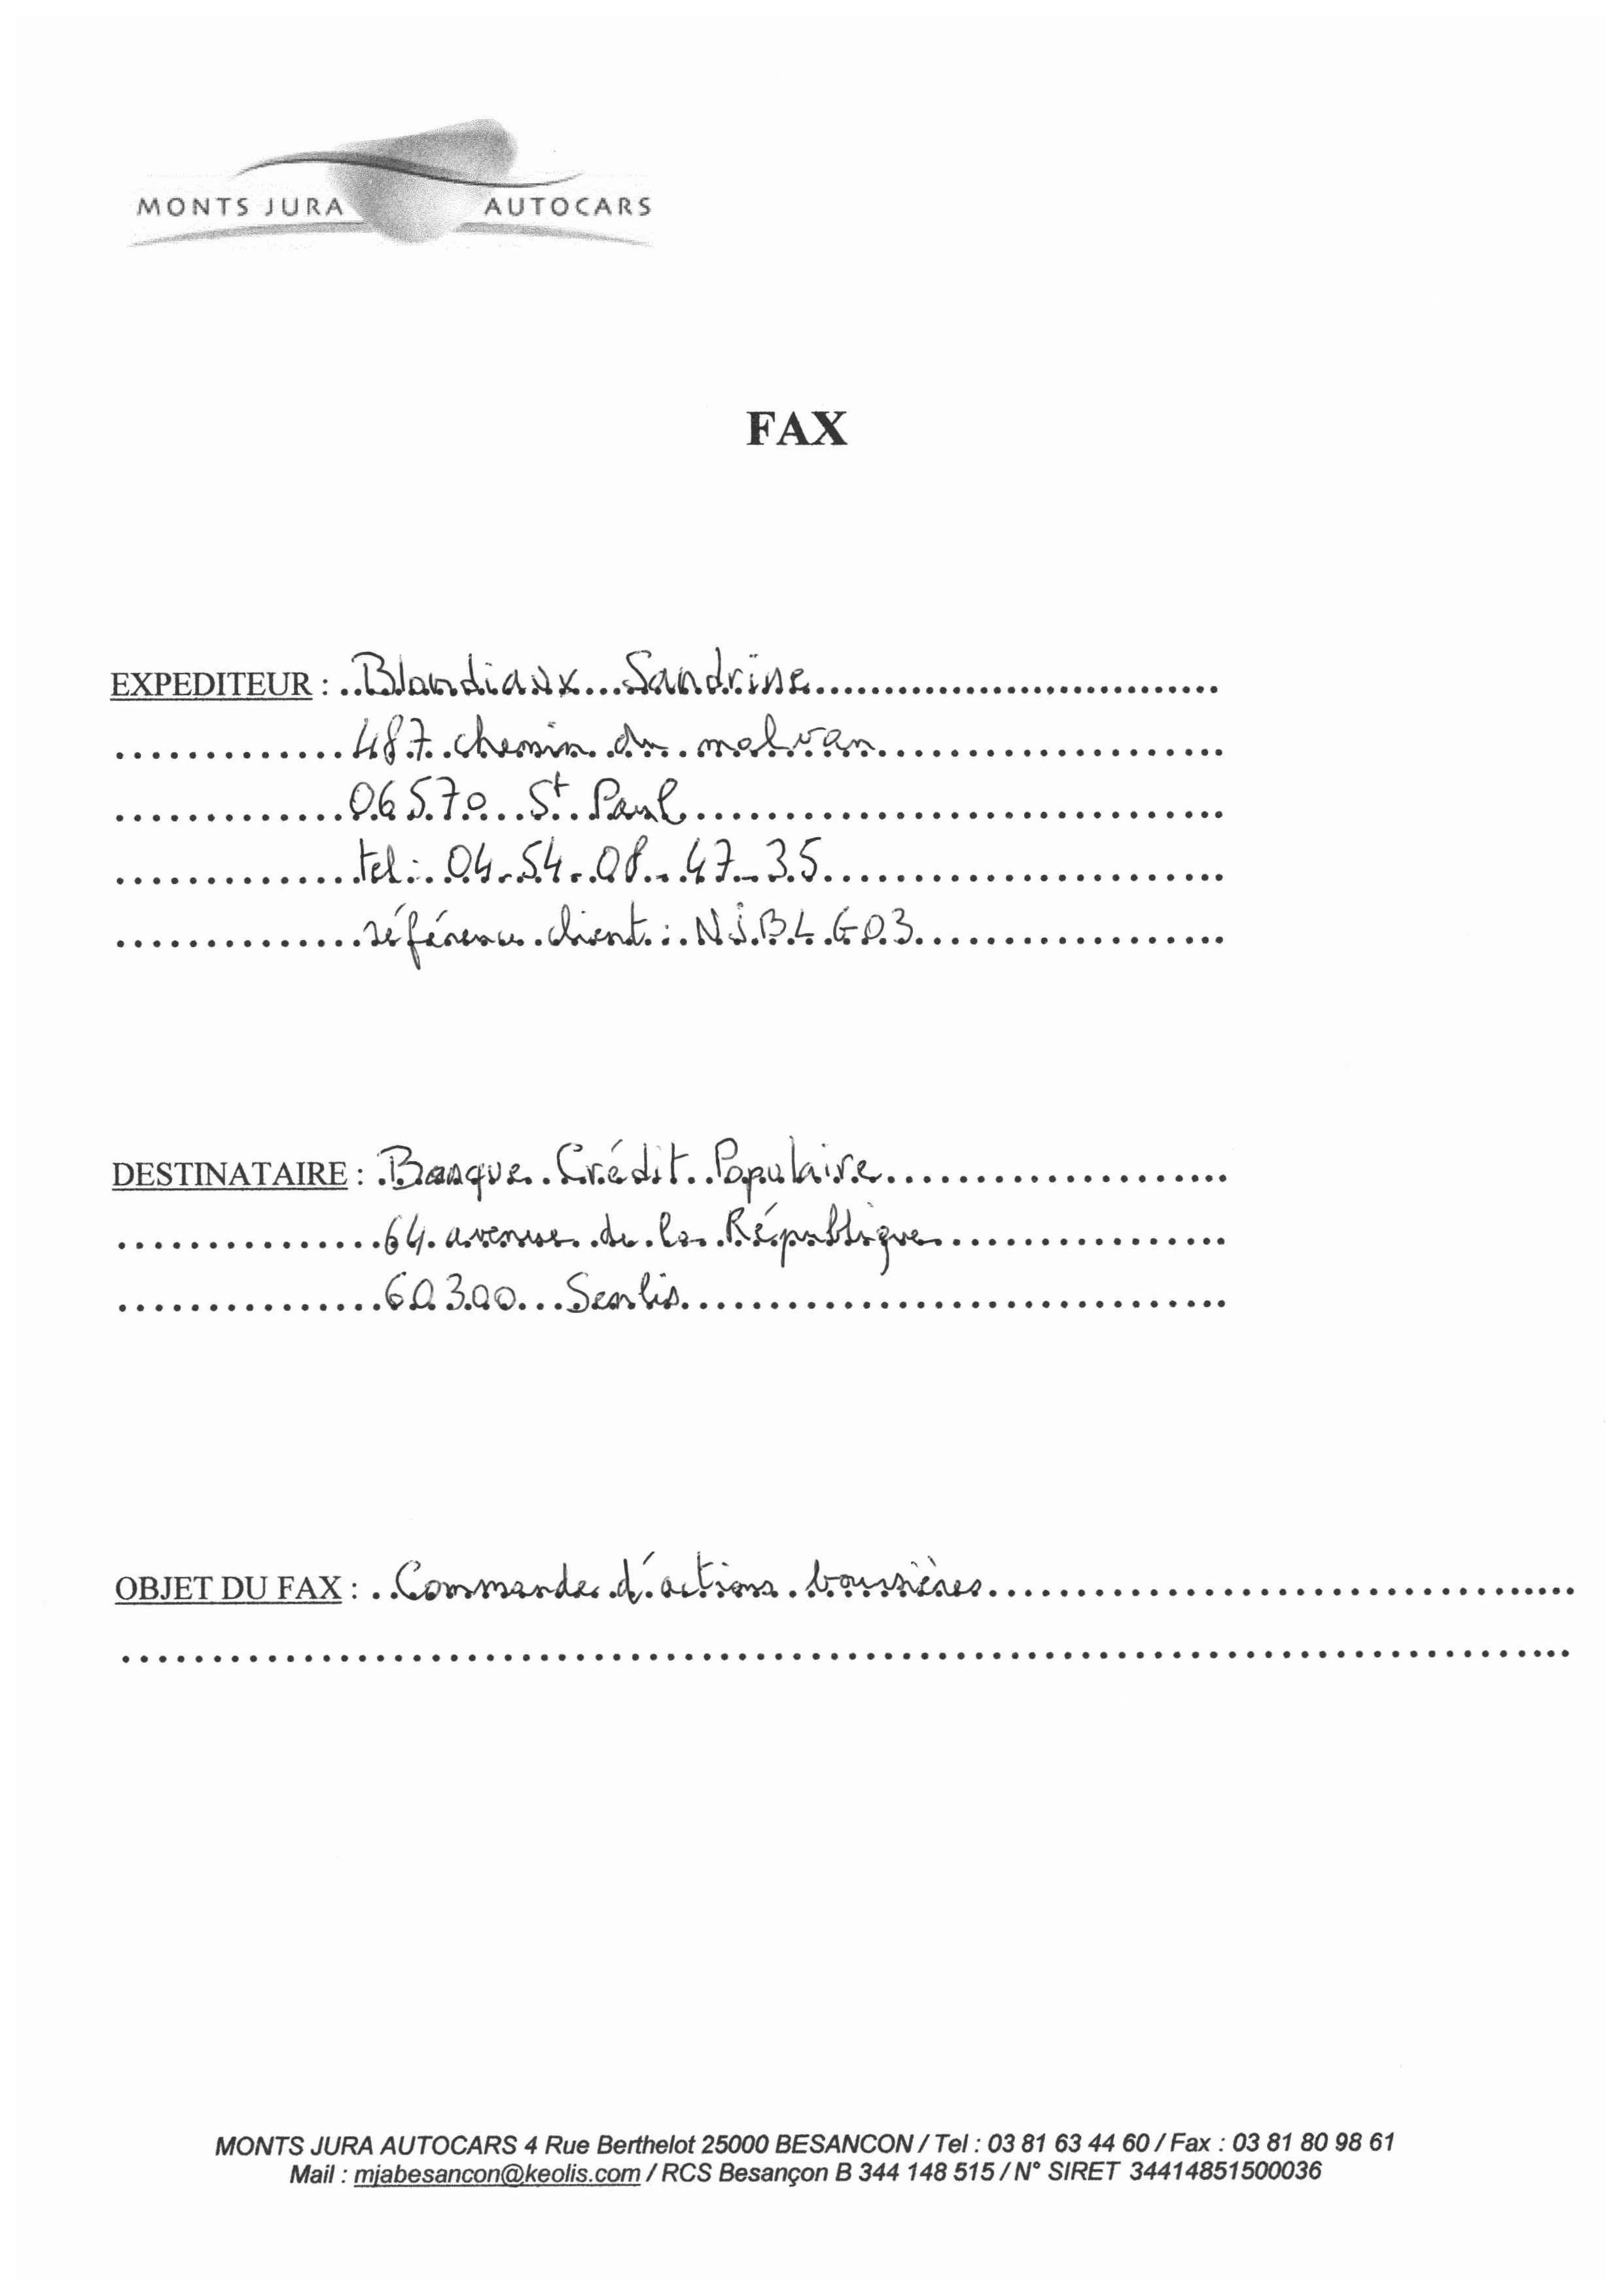 MONTS JURA AUTOCARS
FAX
EXPEDITEUR : Blandiaux Sandrine
487 chemin du malvan
06570 St Paul
tel : 04.54.08.47.35
référence client : NJBLG03
DESTINATAIRE : Banque Crédit Populaire
64 avenue de la République
60300 Senlis
OBJET DU FAX : Commande d'actions boursières
MONTS JURA AUTOCARS 4 Rue Berthelot 25000 BESANCON / Tel : 03 81 63 44 60 / Fax : 03 81 80 98 61
Mail : mjabesancon@keolis.com / RCS Besançon B 344 148 515 / N° SIRET 34414851500036